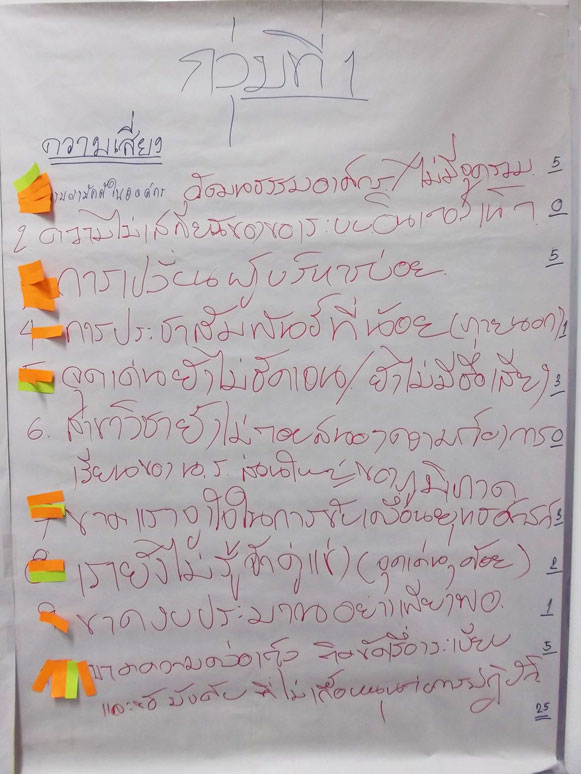 กลุ่มที่ 1
ความเสี่ยง
วัฒนธรรมองค์กร/ไม่มีจุดรวม 5
2. ความไม่เสถียรของระบบอินเตอร์เน็ต 0
การเปลี่ยนผู้บริหารบ่อย 5
4 การประชาสัมพันธ์ที่น้อย (ภายนอก) 1
5. จุดเด่นยังไม่ชัดเจน/ยังไม่มีชื่อเสียง 3
6. สาขาวิชายังไม่ตอบสนองความต้องการ 0
เรียนของ น.ร. ส่วนใหญ่ของภูมิภาค
7 ขาดแรงจูงใจในการขับเคลื่อนยุทธศาสตร์ 3
8 เรายังไม่รู้จักคู่แข่ง (จุดเด่น, ด้อย) 2
9. ขาดงบประมาณอย่างเพียงพอ 1
ขาดความคล่องตัว ระเบียบ 5
และข้อบังคับ ที่ไม่เอื้อหนุนต่อการปฏิบัติ
25